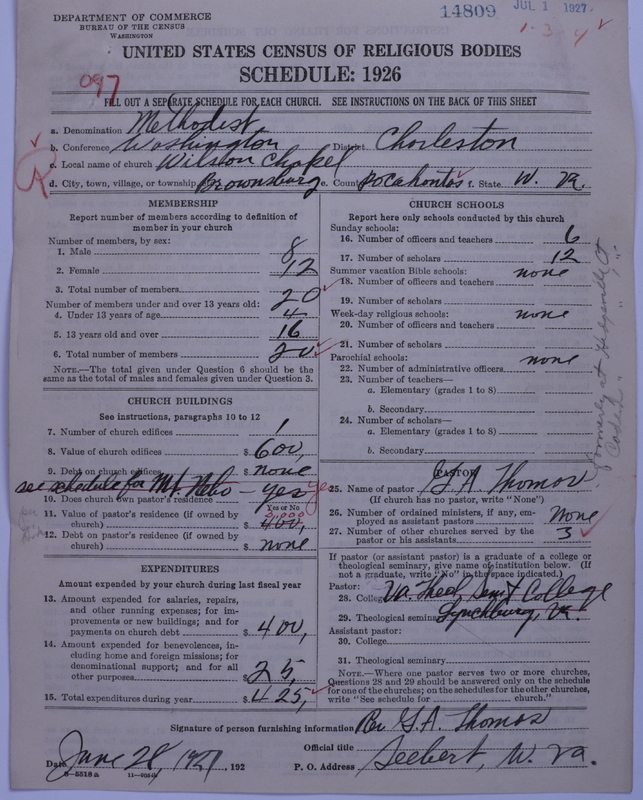 DEPARTMENT OF COMMERCE
BUREAU OF THE CENSUS
WASHINGTON
14809
JUL 1 1927
1-3-4
UNITED STATES CENSUS OF RELIGIOUS BODIES
SCHEDULE: 1926
097
FILL OUT A SEPARATE SCHEDULE FOR EACH CHURCH. SEE INSTRUCTIONS ON THE BACK OF THIS SHEET
a. Denomination Methodist
b. Conference Washington District Charleston
c. Local name of church Wilson Chapel
d. City, town, village, or township Brownsburg e. County Pocahontas f. State W. Va.
MEMBERSHIP
Report number of members according to definition of member in your church
Number of members, by sex:
1. Male 8
2. Female 12
3. Total number of members 20
Number of members under and over 13 years old:
4. Under 13 years of age 4
5. 13 years old and over 16
6. Total number of members 20
NOTE.—The total given under Question 6 should be the same as the total of males and females given under Question 3.
CHURCH BUILDINGS
See instructions, paragraphs 10 to 12
7. Number of church edifices 1
8. Value of church edifices $ 600,
9. Debt on church edifices $ none
see schedule for Mt. Nebo - yes yes
10. Does church own pastor's residence
Yes or No
11. Value of pastor's residence (if owned by church) $ 400,
12. Debt on pastor's residence (if owned by church) $ none
EXPENDITURES
Amount expended by your church during last fiscal year
13. Amount expended for salaries, repairs, and other running expenses; for improvements or new buildings; and for payments on church debt $ 400,
14. Amount expended for benevolences, including home and foreign missions; for denominational support; and for all other purposes $ 25,
15. Total expenditures during year $ 425,
CHURCH SCHOOLS
Report here only schools conducted by this church
Sunday schools:
16. Number of officers and teachers 6
17. Number of scholars 12
Summer vacation Bible schools: none
18. Number of officers and teachers
19. Number of scholars
Week-day religious schools: none
20. Number of officers and teachers
21. Number of scholars
Parochial schools: none
22. Number of administrative officers
23. Number of teachers—
a. Elementary (grades 1 to 8)
b. Secondary
24. Number of scholars—
a. Elementary (grades 1 to 8)
b. Secondary
formerly at
PASTOR
25. Name of pastor G. A. Thomas
(If church has no pastor, write "None")
26. Number of ordained ministers, if any, employed as assistant pastors None
27. Number of other churches served by the pastor or his assistants 3
If pastor (or assistant pastor) is a graduate of a college or theological seminary, give name of institution below. (If not a graduate, write "No" in the space indicated.)
Pastor:
28. College Va. Theol Semi & College
29. Theological seminary Lynchburg, Va.
Assistant pastor:
30. College
31. Theological seminary
NOTE.—Where one pastor serves two or more churches, Questions 28 and 29 should be answered only on the schedule for one of the churches; on the schedules for the other churches, write "See schedule for church."
Signature of person furnishing information G. A. Thomas
Official title
Date June 28, 1927, 192
P. O. Address Seebert, W. Va.
8-5518 a 11-9054b